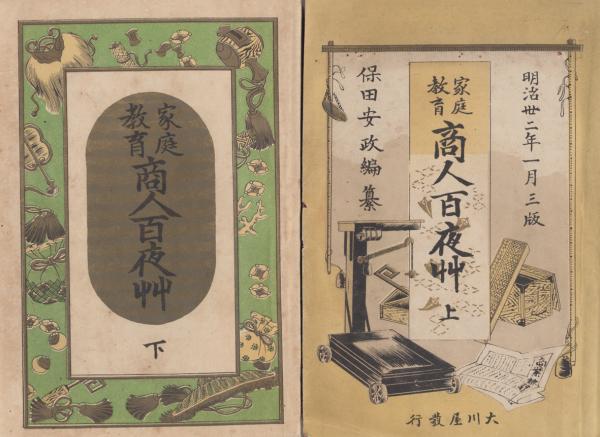 家庭
教育
商人百夜艸
下
明治丗二年一月三版
家庭
教育
商人百夜艸
上
保田安政編纂
大川屋發行